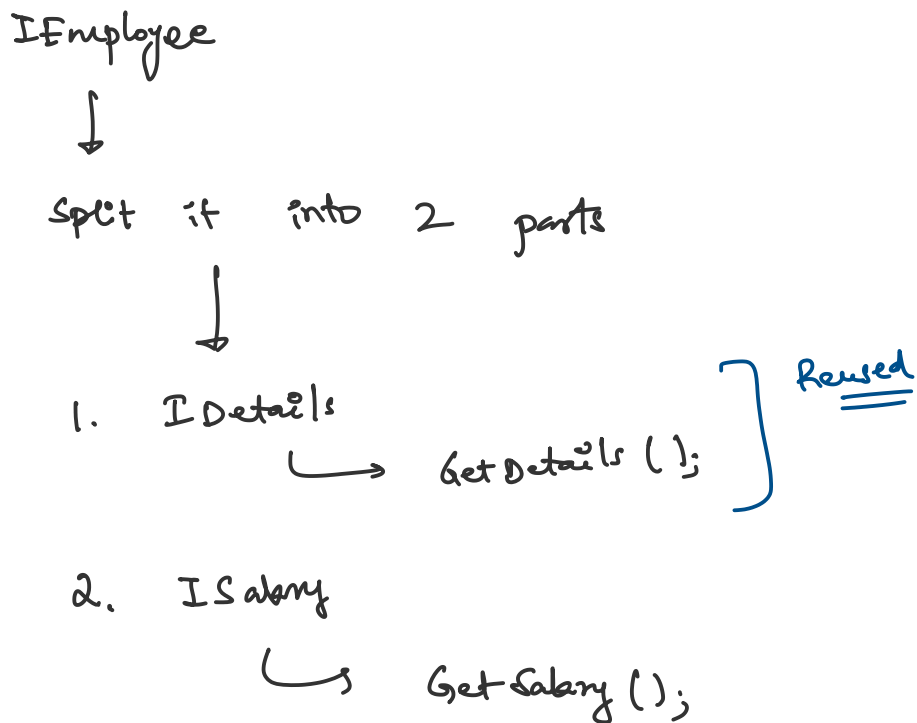 IEmployee
Split it into 2 parts
1. IDetails
GetDetails ();
Reused
2. ISalary
GetSalary ();